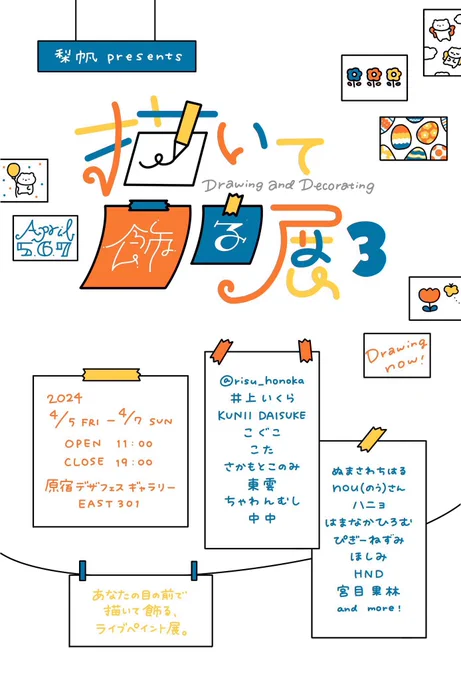 梨帆 presents
描いて
Drawing and Decorating
飾る展3
April
5.6.7
Drawing
now!
2024
4/5 FRI – 4/7 SUN
OPEN 11:00
CLOSE 19:00
原宿デザフェスギャラリー
EAST301
@risu_honoka
井上いくら
KUNII DAISUKE
こぐこ
こた
さかもとこのみ
東雲
ちゃわんむし
中中
ぬまさわちはる
nou(のう)さん
ハニョ
はまなかひろむ
ぴぎーねずみ
ほしみ
HND
宮目果林
and more!
あなたの目の前で
描いて飾る、
ライブペイント展。